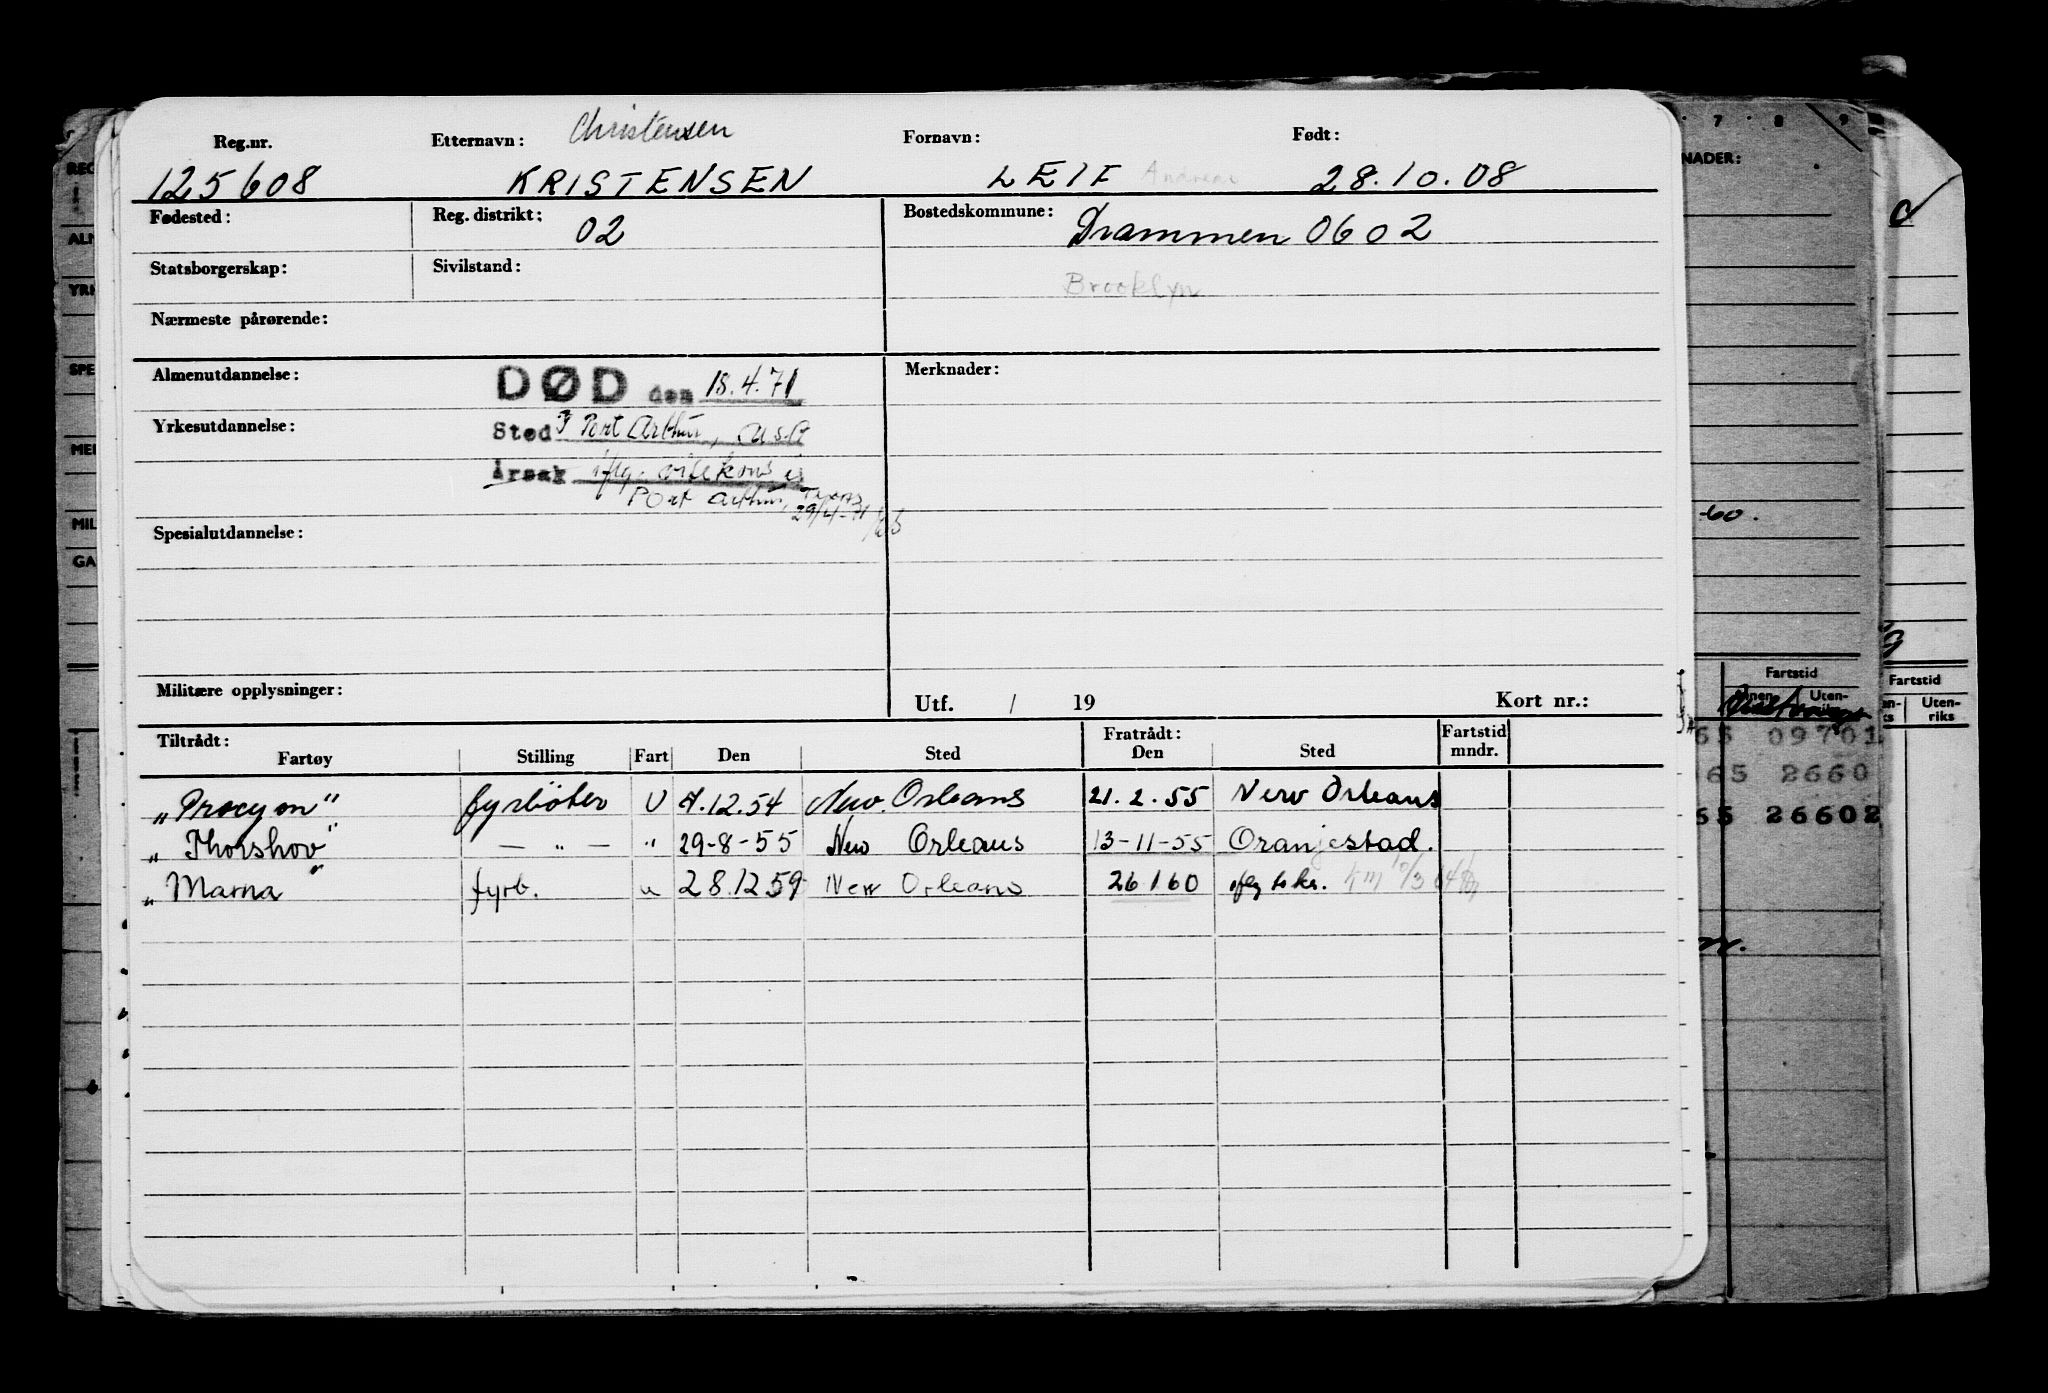 Reg.nr. Etternavn: Christensen Fornavn: Født:
125608 KRISTENSEN LEIF Andreas 28.10.08
Fødested: Reg. distrikt: 02 Bostedskommune: Drammen 0602
Statsborgerskap: Sivilstand: Brooklyn
Nærmeste pårørende:
Almenutdannelse: DØD den 18.4.71 Merknader:
Yrkesutdannelse: Sted Port Arthur, U.S.A
Årsak iflg. visekons i
Port Arthur, Texas
29/4-71
Spesialutdannelse:
Militære opplysninger: Utf. / 19 Kort nr.:
Tiltrådt: Fratrådt: Fartstid
Fartøy Stilling Fart Den Sted Den Sted mndr.
"Procyon" fyrbøter U 12.54 New Orleans 21.2.55 New Orleans
"Thorshov" — " — " 29-8-55 New Orleans 13-11-55 Oranjestad.
"Marna" fyrb. " 28.12 59 New Orleans 26 1 60
7 8 9
NADER:
-60.
Fartstid
Uten-
65 09701
65 2660
65 26602
Fartstid
Uten-
riks
REG
ALM
YRK
SPE
MIL
GA